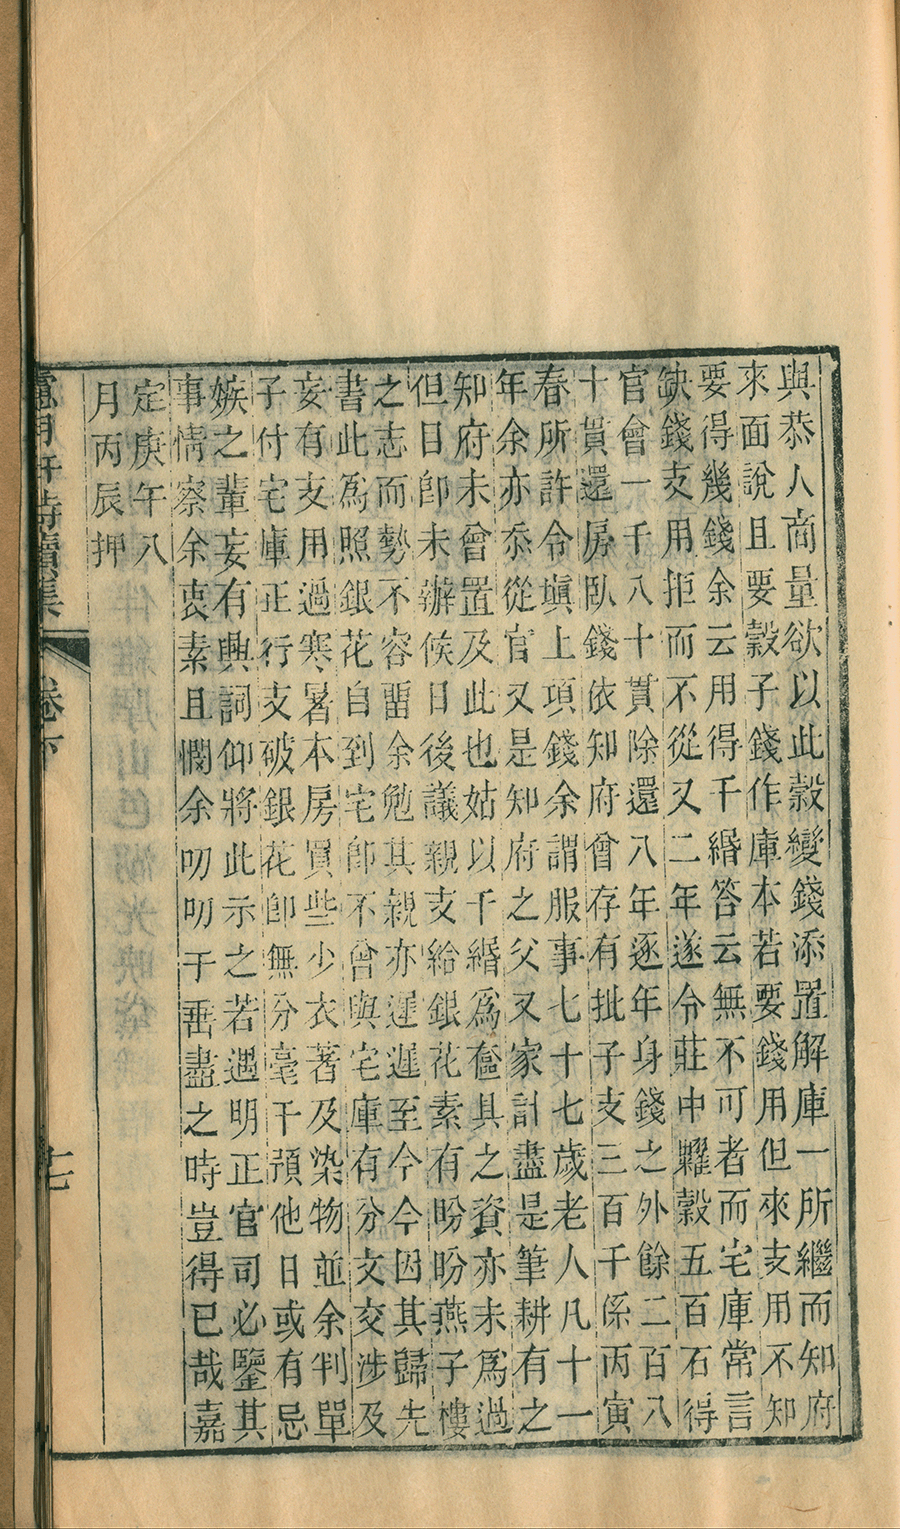 與恭人商量欲以此穀變錢添置解庫一所繼而知府
來面說且要穀子錢作庫本若要錢用但來支用不知
要得幾錢余云用得千緡答云無不可者而宅庫常言
缺錢支用拒而不從又二年遂令莊中糶穀五百石得
官會一千八十貫除還八年逐年身錢之外餘二百八
十貫還房臥錢依知府曾存有批子支三百千係丙寅
春所許令塡上項錢余謂服事七十七歲老人凡十一
年余亦忝從官又是知府之父又家計盡是筆耕有之
知府未曾置及此也姑以千緡爲奩具之資亦未爲過
但目卽未辦候日後議親支給銀花素有盼盼燕子樓
之志而勢不容畱余勉其親亦遲遲至今今因其歸先
書此爲照銀花自到宅卽不曾與宅庫有分文交涉及
妄有支用過寒暑本房買些少衣著及染物並余判單
子付宅庫正行支破銀花卽無分毫干預他日或有忌
嫉之輩妄有興詞仰將此示之若遇明正官司必鑒其
事情察余衷素且憫余叨叨于垂盡之時豈得已哉嘉
定庚午八
月丙辰押
續集 卷下 七